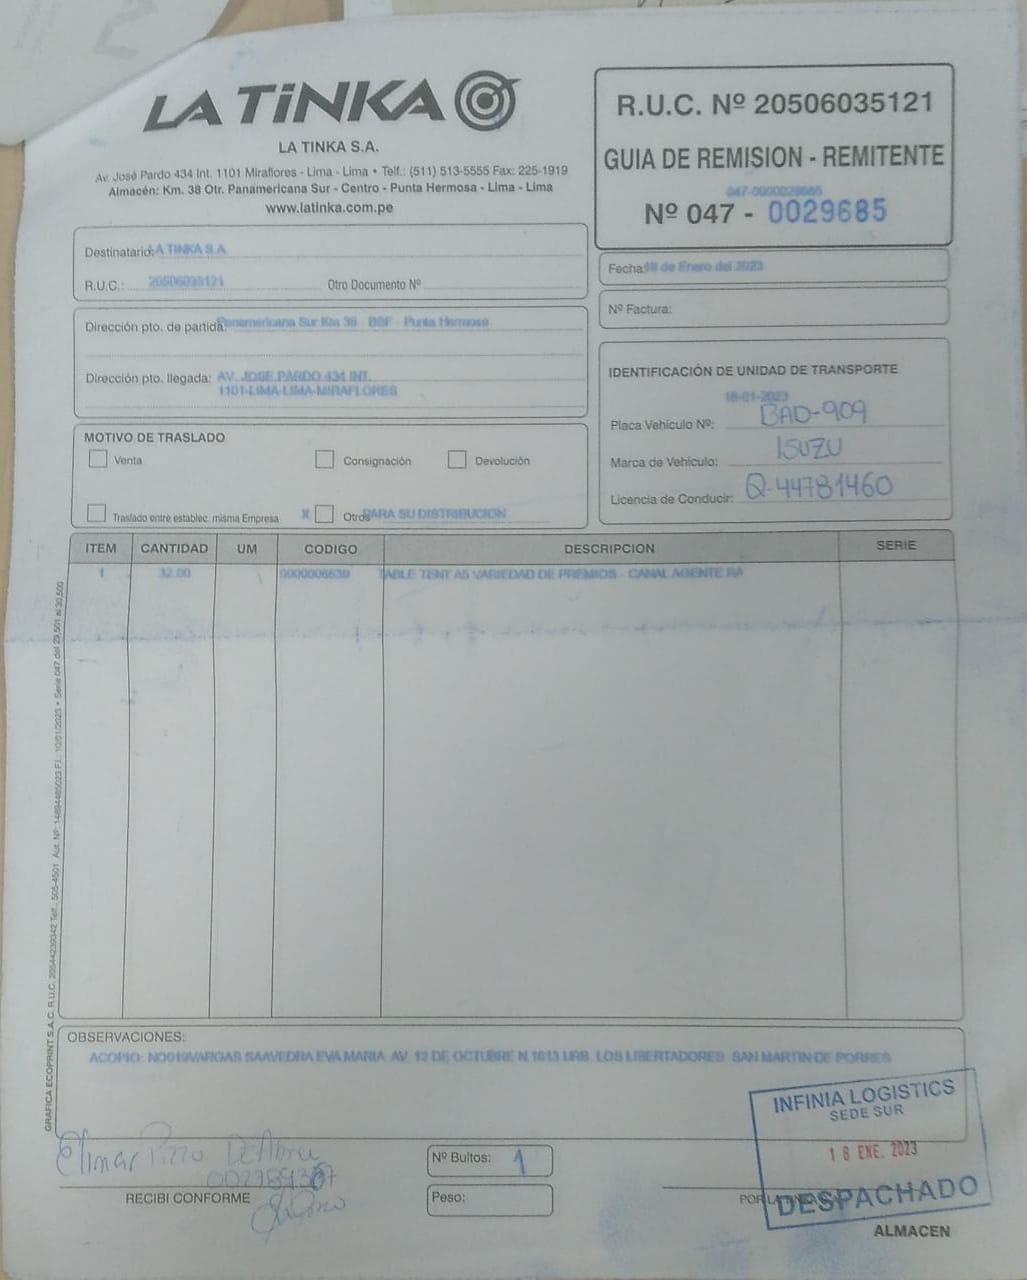 LA TiNKA
LA TINKA S.A.
Av. José Pardo 434 Int. 1101 Miraflores - Lima - Lima • Telf.: (511) 513-5555 Fax: 225-1919
Almacén: Km. 38 Otr. Panamericana Sur - Centro - Punta Hermosa - Lima - Lima
www.latinka.com.pe
R.U.C. Nº 20506035121
GUIA DE REMISION - REMITENTE
047-0000029685
Nº 047 - 0029685
Destinatario: LA TINKA S.A.
R.U.C.: 20506035121 Otro Documento Nº
Fecha: 18 de Enero del 2023
Nº Factura:
Dirección pto. de partida: Panamericana Sur Km 38 BSF - Punta Hermosa
Dirección pto. llegada: AV. JOSE PARDO 434 INT.
1101-LIMA-LIMA-MIRAFLORES
IDENTIFICACIÓN DE UNIDAD DE TRANSPORTE
18-01-2023
Placa Vehículo Nº: BAD-909
Marca de Vehículo: ISUZU
Licencia de Conducir: Q-44781460
MOTIVO DE TRASLADO
Venta Consignación Devolución
Traslado entre establec. misma Empresa X Otros PARA SU DISTRIBUCION
ITEM CANTIDAD UM CODIGO DESCRIPCION SERIE
1 32.00 0000006639 TABLE TENT A5 VARIEDAD DE PREMIOS - CANAL AGENTE RA
GRAFICA ECOPRINT S.A.C. R.U.C. 20544239342 Telf.: 505-4501 Aut. Nº: 14894485023 F.I.: 10/01/2023 • Serie 047 del 29,501 al 30,500
OBSERVACIONES:
ACOPIO: NO019VARGAS SAAVEDRA EVA MARIA AV. 12 DE OCTUBRE N.1613 URB. LOS LIBERTADORES SAN MARTIN DE PORRES
INFINIA LOGISTICS
SEDE SUR
18 ENE. 2023
DESPACHADO
Elimar Pizzo
RECIBI CONFORME
Nº Bultos: 1
Peso:
POR LA TINKA
ALMACEN